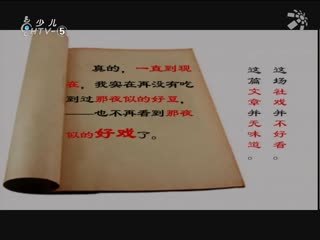 少儿
HTV-5
真的，一直到现
在，我实在再没有吃
到过那夜似的好豆，
——也不再看到那夜
似的好戏了。
这场社戏并不好看。
这篇文章并无味道。